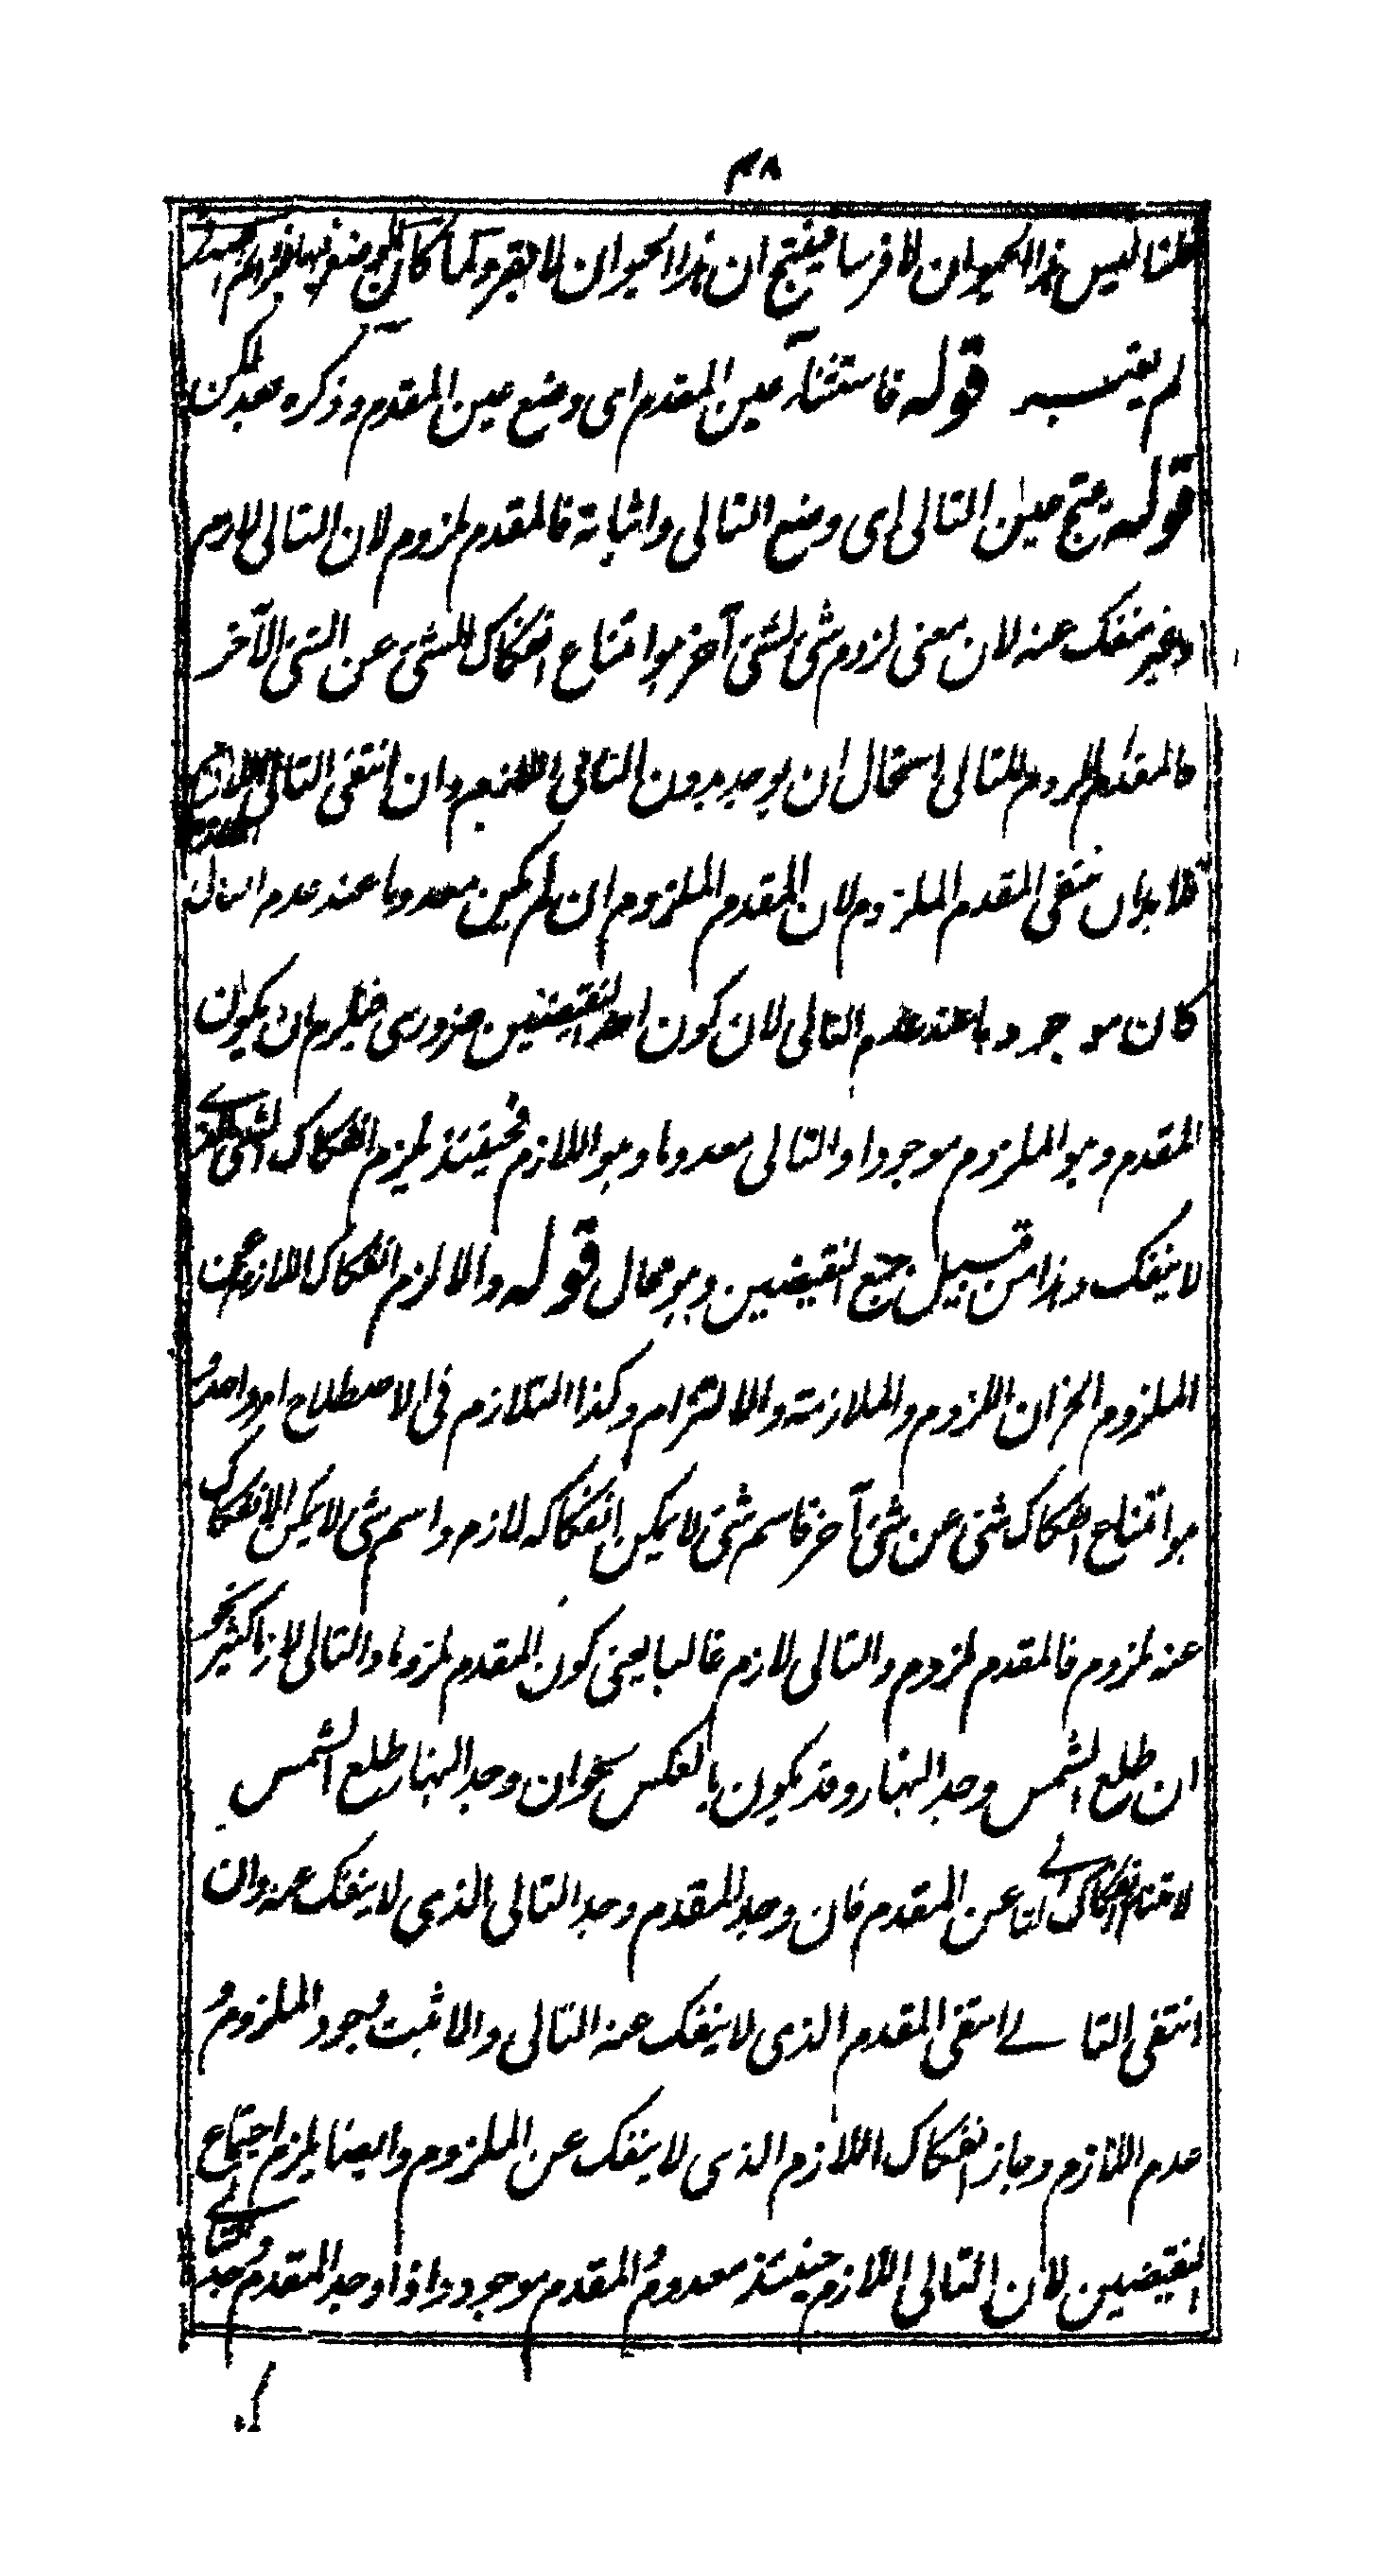 ٤٨
قلنا ليس هذا الحيوان لا فرسا فينتج ان هذا الحيوان لا بقر وكما كان
لم يفسد قوله فاستثناء عين المقدم اى وضع عين المقدم وذكره بعد لكن
قوله ينتج عين التالى اى وضع التالى واثباته فالمقدم ملزوم لان التالى لازم
وغير منفك عنه لان معنى لزوم شئ لشئ آخر هو امتناع انفكاك الشئ عن الشئ الآخر
فالمقدم الملزوم للتالى استحال ان يوجد بدون التالى اللازم وان انتفى التالى اللازم
فلا بد ان ينتفى المقدم الملزوم لان المقدم الملزوم ان لم يكن معدوما عند عدم التالى
كان موجودا عند عدم التالى لان كون احد النقيضين ضرورى فيلزم ان يكون
المقدم وهو الملزوم موجودا والتالى معدوما وهو اللازم فحينئذ يلزم انفكاك الشئ
لا ينفك وهذا من قبيل جمع النقيضين وهو محال قوله والا لزم انفكاك اللازم عن
الملزوم الخ ان اللزوم والملازمة والالتزام وكذا التلازم فى الاصطلاح امر واحد و
هو امتناع انفكاك شئ عن شئ آخر فاسم شئ لا يمكن انفكاكه لازم واسم شئ لا يمكن الانفكاك
عنه ملزوم فالمقدم ملزوم والتالى لازم غالبا يعنى كون المقدم ملزوما والتالى لازما كثير نحو
ان طلع الشمس وجد النهار وقد يكون بالعكس نحو ان وجد النهار طلع الشمس
لامتناع انفكاك التالى عن المقدم فان وجد المقدم وجد التالى الذى لا ينفك عنه وان
انتفى التالے انتفى المقدم الذى لا ينفك عنه التالى والا ثبت وجود الملزوم و
عدم اللازم وجاز انفكاك اللازم الذى لا ينفك عن الملزوم وايضا يلزم اجتماع
النقيضين لان التالى اللازم حينئذ معدوم والمقدم موجود واذا وجد المقدم وجد التالے